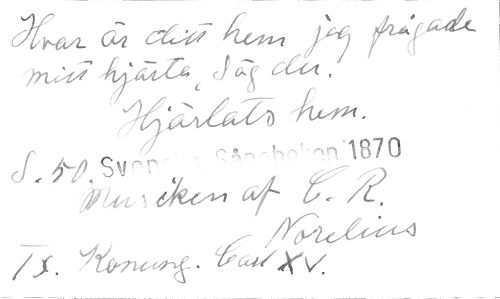 Hvar är ditt hem jag frågade
mitt hjärta, Säg du.
Hjärtats hem.
S. 50. Svenska Sångboken 1870
Musiken af C. R.
Norelius
Tx. Konung. Carl XV.